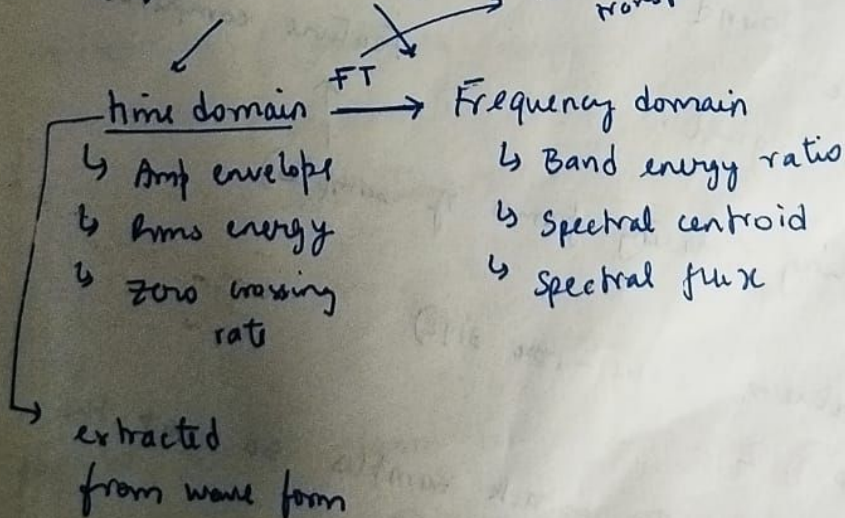 FT
time domain → Frequency domain
↳ Amp envelope
↳ Rms energy
↳ zero crossing
rate
↳ Band energy ratio
↳ Spectral centroid
↳ Spectral flux
extracted
from wave form